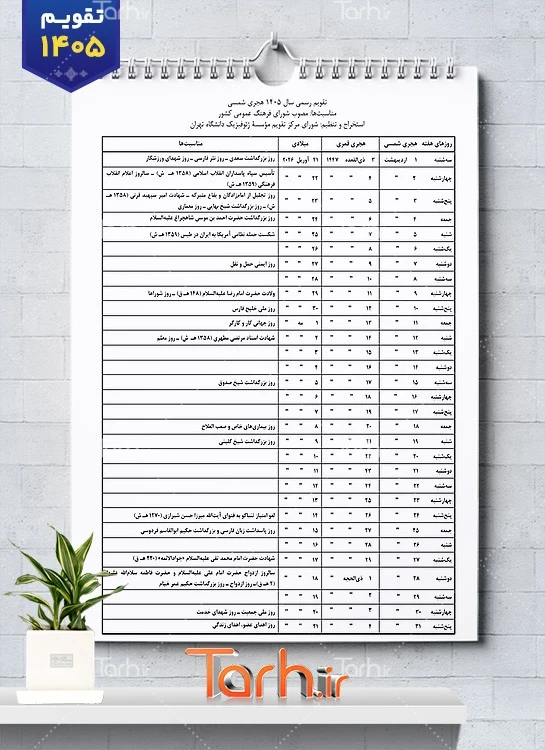 تقویم
۱۴۰۵
تقویم رسمی سال ۱۴۰۵ هجری شمسی
مناسبت‌ها: مصوب شورای فرهنگ عمومی کشور
استخراج و تنظیم: شورای مرکز تقویم مؤسسهٔ ژئوفیزیک دانشگاه تهران
روزهای هفته هجری شمسی هجری قمری میلادی مناسبت‌ها
سه‌شنبه ۱ اردیبهشت ۳ ذی‌القعده ۱۴۴۷ ۲۱ آوریل ۲۰۲۶ روز بزرگداشت سعدی ـ روز نثر فارسی ـ روز شهدای ورزشکار
چهارشنبه ۲ " ۴ " " ۲۲ " " تأسیس سپاه پاسداران انقلاب اسلامی (۱۳۵۸ هـ ش) ـ سالروز اعلام انقلاب
فرهنگی (۱۳۵۹ هـ ش)
پنج‌شنبه ۳ " ۵ " " ۲۳ " " روز تجلیل از امامزادگان و بقاع متبرکه ـ شهادت امیر سپهبد قرنی (۱۳۵۸ هـ
ش) ـ روز بزرگداشت شیخ بهایی ـ روز معماری
جمعه ۴ " ۶ " " ۲۴ " " روز بزرگداشت حضرت احمد بن موسی شاهچراغ علیه‌السلام
شنبه ۵ " ۷ " " ۲۵ " " شکست حمله نظامی آمریکا به ایران در طبس (۱۳۵۹ هـ ش)
یک‌شنبه ۶ " ۸ " " ۲۶ " "
دوشنبه ۷ " ۹ " " ۲۷ " " روز ایمنی حمل و نقل
سه‌شنبه ۸ " ۱۰ " " ۲۸ " "
چهارشنبه ۹ " ۱۱ " " ۲۹ " " ولادت حضرت امام رضا علیه‌السلام (۱۴۸ هـ ق) ـ روز شوراها
پنج‌شنبه ۱۰ " ۱۲ " " ۳۰ " " روز ملی خلیج فارس
جمعه ۱۱ " ۱۳ " " ۱ مه " روز جهانی کار و کارگر
شنبه ۱۲ " ۱۴ " " ۲ " " شهادت استاد مرتضی مطهری (۱۳۵۸ هـ ش) ـ روز معلم
یک‌شنبه ۱۳ " ۱۵ " " ۳ " "
دوشنبه ۱۴ " ۱۶ " " ۴ " "
سه‌شنبه ۱۵ " ۱۷ " " ۵ " " روز بزرگداشت شیخ صدوق
چهارشنبه ۱۶ " ۱۸ " " ۶ " "
پنج‌شنبه ۱۷ " ۱۹ " " ۷ " "
جمعه ۱۸ " ۲۰ " " ۸ " " روز بیماری‌های خاص و صعب العلاج
شنبه ۱۹ " ۲۱ " " ۹ " " روز بزرگداشت شیخ کلینی
یک‌شنبه ۲۰ " ۲۲ " " ۱۰ " "
دوشنبه ۲۱ " ۲۳ " " ۱۱ " "
سه‌شنبه ۲۲ " ۲۴ " " ۱۲ " "
چهارشنبه ۲۳ " ۲۵ " " ۱۳ " "
پنج‌شنبه ۲۴ " ۲۶ " " ۱۴ " " لغو امتیاز تنباکو به فتوای آیت‌الله میرزا حسن شیرازی (۱۲۷۰ هـ ش)
جمعه ۲۵ " ۲۷ " " ۱۵ " " روز پاسداشت زبان فارسی و بزرگداشت حکیم ابوالقاسم فردوسی
شنبه ۲۶ " ۲۸ " " ۱۶ " "
یک‌شنبه ۲۷ " ۲۹ " " ۱۷ " " شهادت حضرت امام محمد تقی علیه‌السلام «جوادالائمه» (۲۲۰ هـ ق)
دوشنبه ۲۸ " ۱ ذی‌الحجه " ۱۸ " " سالروز ازدواج حضرت امام علی علیه‌السلام و حضرت فاطمه سلام‌الله علیها
(۲ هـ ق) ـ روز ازدواج ـ روز بزرگداشت حکیم عمر خیام
سه‌شنبه ۲۹ " ۲ " " ۱۹ " "
چهارشنبه ۳۰ " ۳ " " ۲۰ " " روز ملی جمعیت ـ روز شهدای خدمت
پنج‌شنبه ۳۱ " ۴ " " ۲۱ " " روز اهدای عضو، اهدای زندگی
Tarh.ir